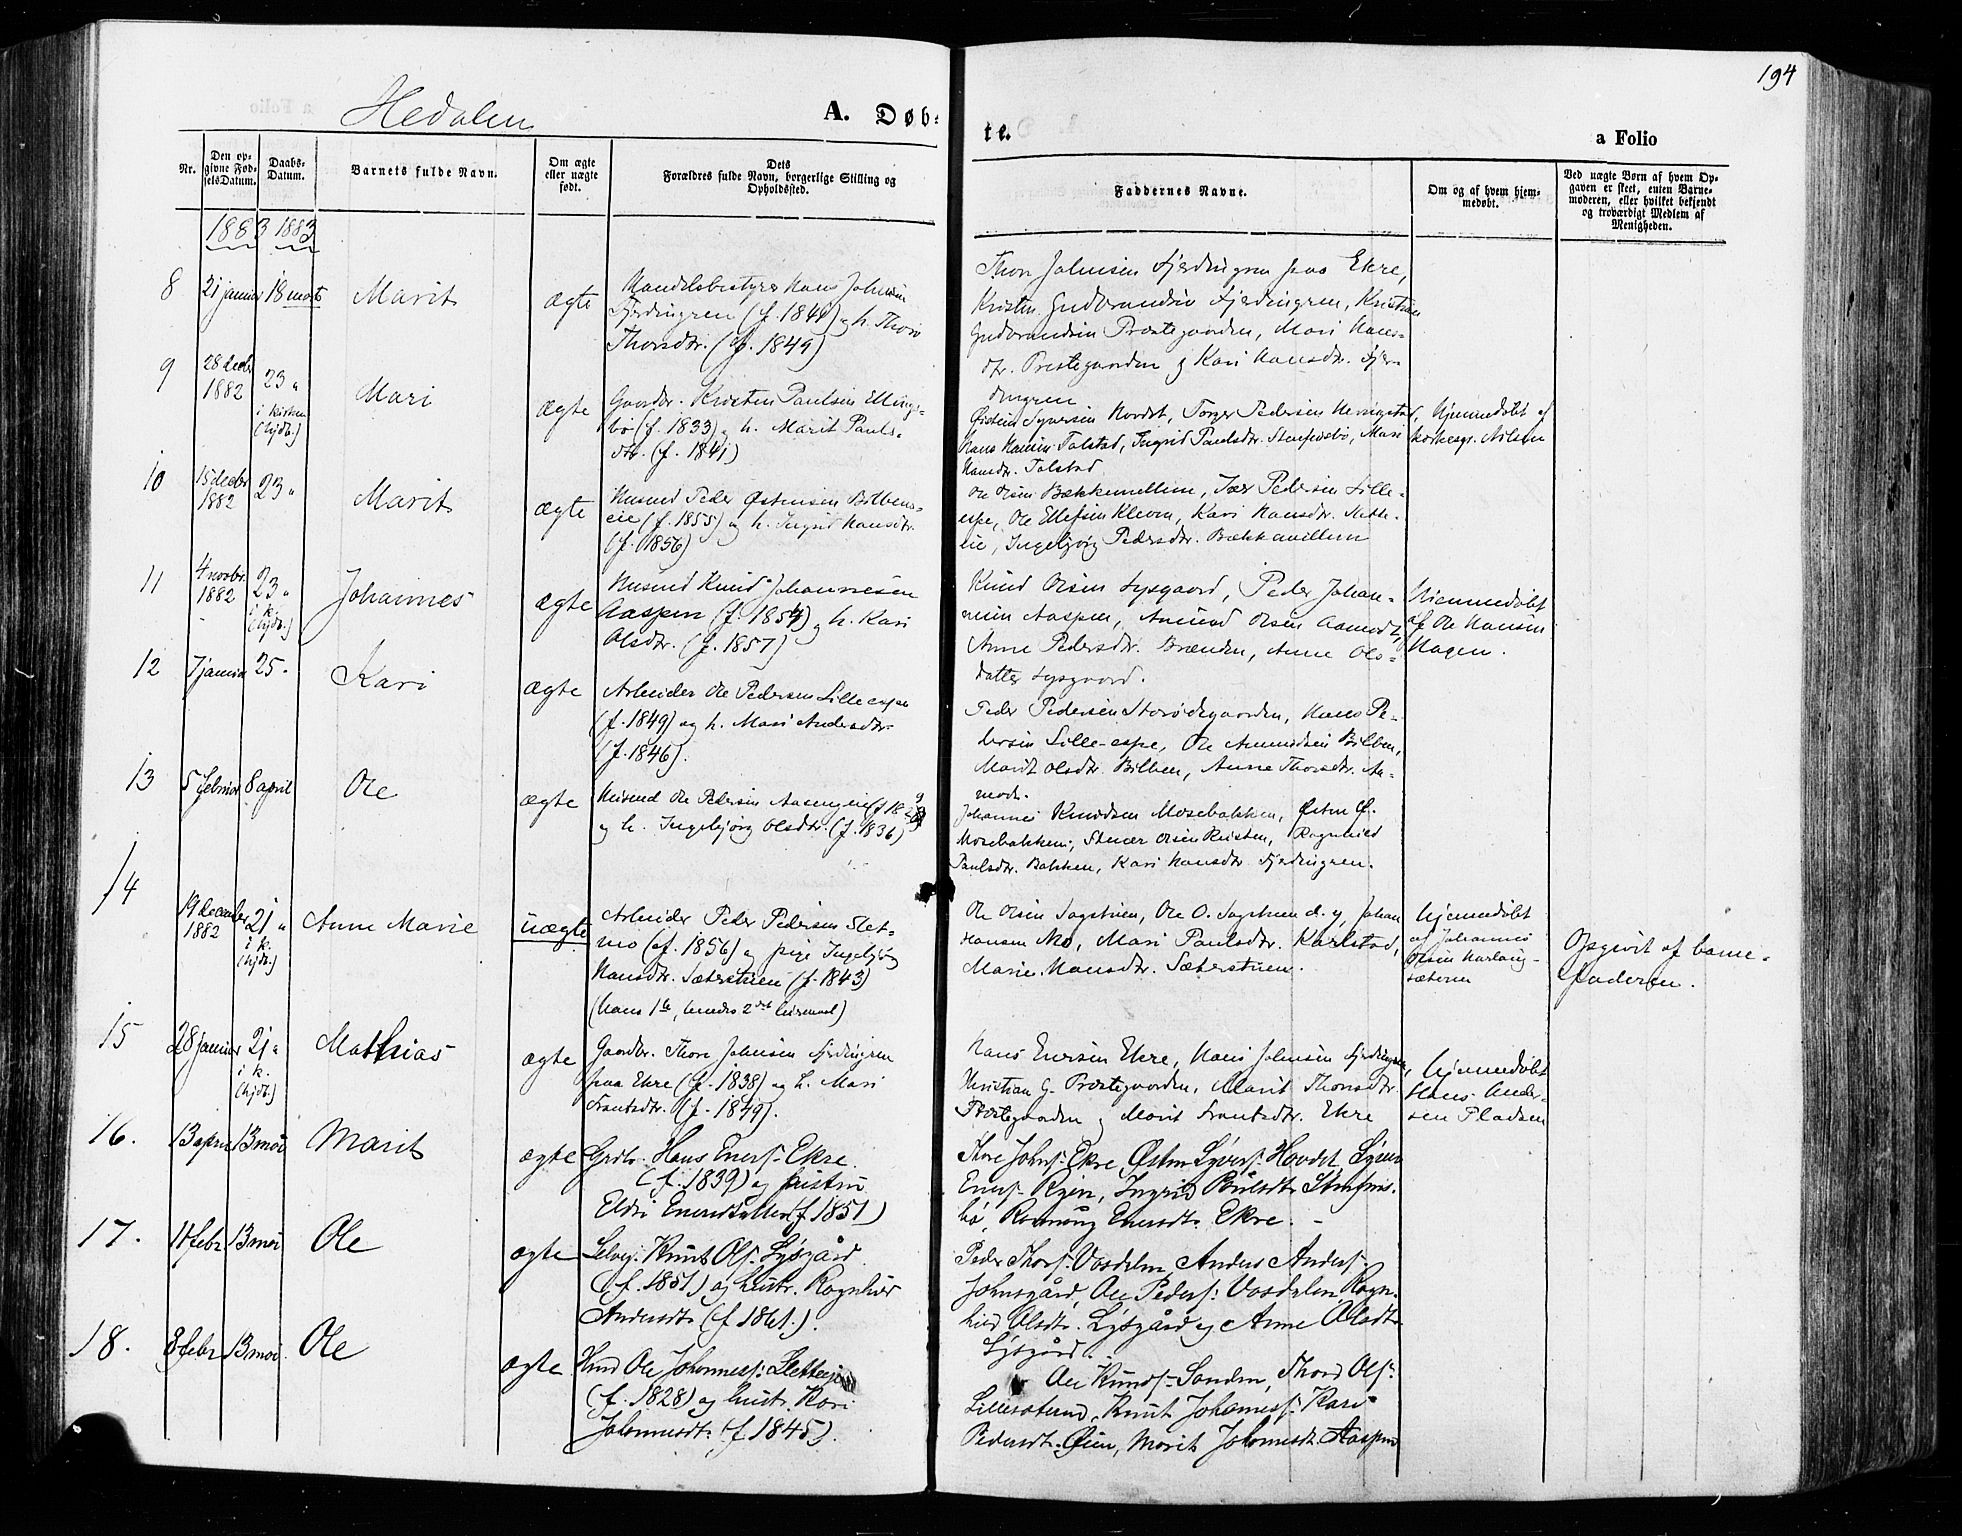 194
Hedalen
A. Døb-
te.
a Folio
Nr.
Den op-
givne Fød-
selsDatum.
Daabs-
Datum.
Barnets fulde Navn.
Om ægte
eller uægte
født.
Dets
Forældres fulde Navn, borgerlige Stilling og
Opholdssted.
Faddernes Navne.
Om og af hvem hjem-
medøbt.
Ved uægte Børn af hvem Op-
gaven er skeet, enten Barne-
moderen, eller hvilket bekjendt
og troværdigt Medlem af
Menigheden.
1883 1883
8
21 januar
18 marts
Marit
ægte
Handelsbestyrer Hans Johnsen
Fjerdingren (f. 1841) og h. Thora
Thorsdtr. (f. 1849)
Thore Johnsen Fjerdingren paa Ekre,
Kristen Gudbrandsen Fjerdingren, Kristian
Gudbrandsen Præstegaarden, Mari Hans-
dtr. Prestegaarden og Kari Hansdtr. Fjer-
dingren
9
28 decbr
1882
23 "
i kirken
(hjdt.)
Mari
ægte
Gaardbr. Kristen Paulsen Ellings-
bø (f. 1833) og h. Marit Pauls-
dtr. (f. 1841)
Øisten Syversen Hovdet, Torger Pedersen
Hans Hansen Tolstad, Ingrid Paulsdtr. Stenfinsbø, Mari
Hansdtr. Tolstad
Hjemmedøbt af
Kirkesgr. Nilsen
10
15 decbr
1882
23 "
Marit
ægte
Husmd Peder Østensen Bilbens-
eie (f. 1855) og h. Ingrid Hansdtr.
(f. 1856)
Ole Olsen Bækkemellem, Iver Pedersen Lille-
espe, Ole Ellefsen Kleven, Kari Hansdtr.
eie, Ingebjørg Pedersdtr. Bækkemellem
11
4 novbr.
1882
23 "
i k.
(hjdt.)
Johannes
ægte
Husmd Knud Johannesen
Aaspen (f. 1854) og h. Kari
Olsdtr. (f. 1857)
Knud Olsen Lysgaard, Peder Johan-
nesen Aaspen, Amund Olsen Aamodt,
Anne Pedersdtr. Brænden, Anne Ols-
datter Lysgaard.
Hjemmedøbt
af Ole Hansen
Hagen.
12
7 januar
25 "
Kari
ægte
Arbeider Ole Pedersen Lilleespe
(f. 1849) og h. Mari Andersdtr.
(f. 1846).
Peder Pedersen Storødegaarden, Hans Pe-
dersen Lille-espe, Ole Amundsen Bilben,
Marit Olsdtr. Bilben, Anne Thorsdtr. Aa-
modt.
13
5 februar
8 april
Ole
ægte
Husmd Ole Pedersen Aasengeie
og h. Ingebjørg Olsdtr. (f. 1836)
Johannes Knudsen Mosebakken, Østen Ø.
Mosebakken, Stener Olsen Risten, Ragnhild
Paulsdtr. Bakken, Kari Hansdtr. Fjerdingren.
14
19 december
1882
21 "
i k.
(hjdt.)
Anne Marie
uægte
Arbeider Peder Pedersen Slet-
mo (f. 1856) og pige Ingebjørg
Hansdtr. Sæterstuen (f. 1843)
(hans 1ste, hendes 2det leiermaal)
Ole Olsen Sagstuen, Ole O. Sagstuen d. y., Johan
Hansen Mo, Mari Paulsdtr. Karlstad,
Marie Hansdtr. Sæterstuen.
Hjemmedøbt
af Johannes
Olsen Haslaug-
sæteren
Opgivet af barne-
faderen.
15
28 januar
21 "
i k.
(hjdt.)
Mathias
ægte
Gaardbr. Thore Johnsen Fjerdingren
paa Ekre (f. 1838) og h. Mari
Frantsdtr. (f. 1849).
Hans Enersen Ekre, Hans Johnsen Fjerdingren,
Kristian G. Præstegaarden, Marit Thorsdtr.
Præstegaarden og Marit Frantsdtr. Ekre
Hjemmedøbt
Hans Ander-
sen Pladsen
16.
13 april
13 mai
Marit
ægte
Grdbr. Hans Enersⁿ. Ekre
(f. 1839) og hustru
Eldri Enersdatter (f 1851)
Thore Johnsⁿ. Ekre, Østen Syversⁿ. Hovdet, Syver
Enersⁿ. Ryen, Ingrid Pålsdtr. Stenfins-
bø, Rønnaug Enersdtr. Ekre. -
17.
11 febr
13 mai
Ole
ægte
Selvej. Knut Olsⁿ. Lysgård
(f. 1851) og hustr. Ragnhild
Andersdtr. (f 1861.).
Peder Thorsⁿ. Vasdalen, Anders Andersⁿ.
Johnsgård, Ole Pedersⁿ. Vasdalen, Ragn-
hild Olsdtr. Lysgård og Anne Olsdtr.
Lysgård.
18.
8 febr
13 mai.
Ole
ægte
Husmd Ole Johannessⁿ. Sletteeje
(f. 1828) og hustr. Kari
Johannesdtr. (f 1845).
Ole Knudsⁿ. Sanden, Thord Olsⁿ.
Lillesæterød, Knut Johannessⁿ. Kari
Pedersdtr. Øien, Marit Johannesdtr. Aaspen